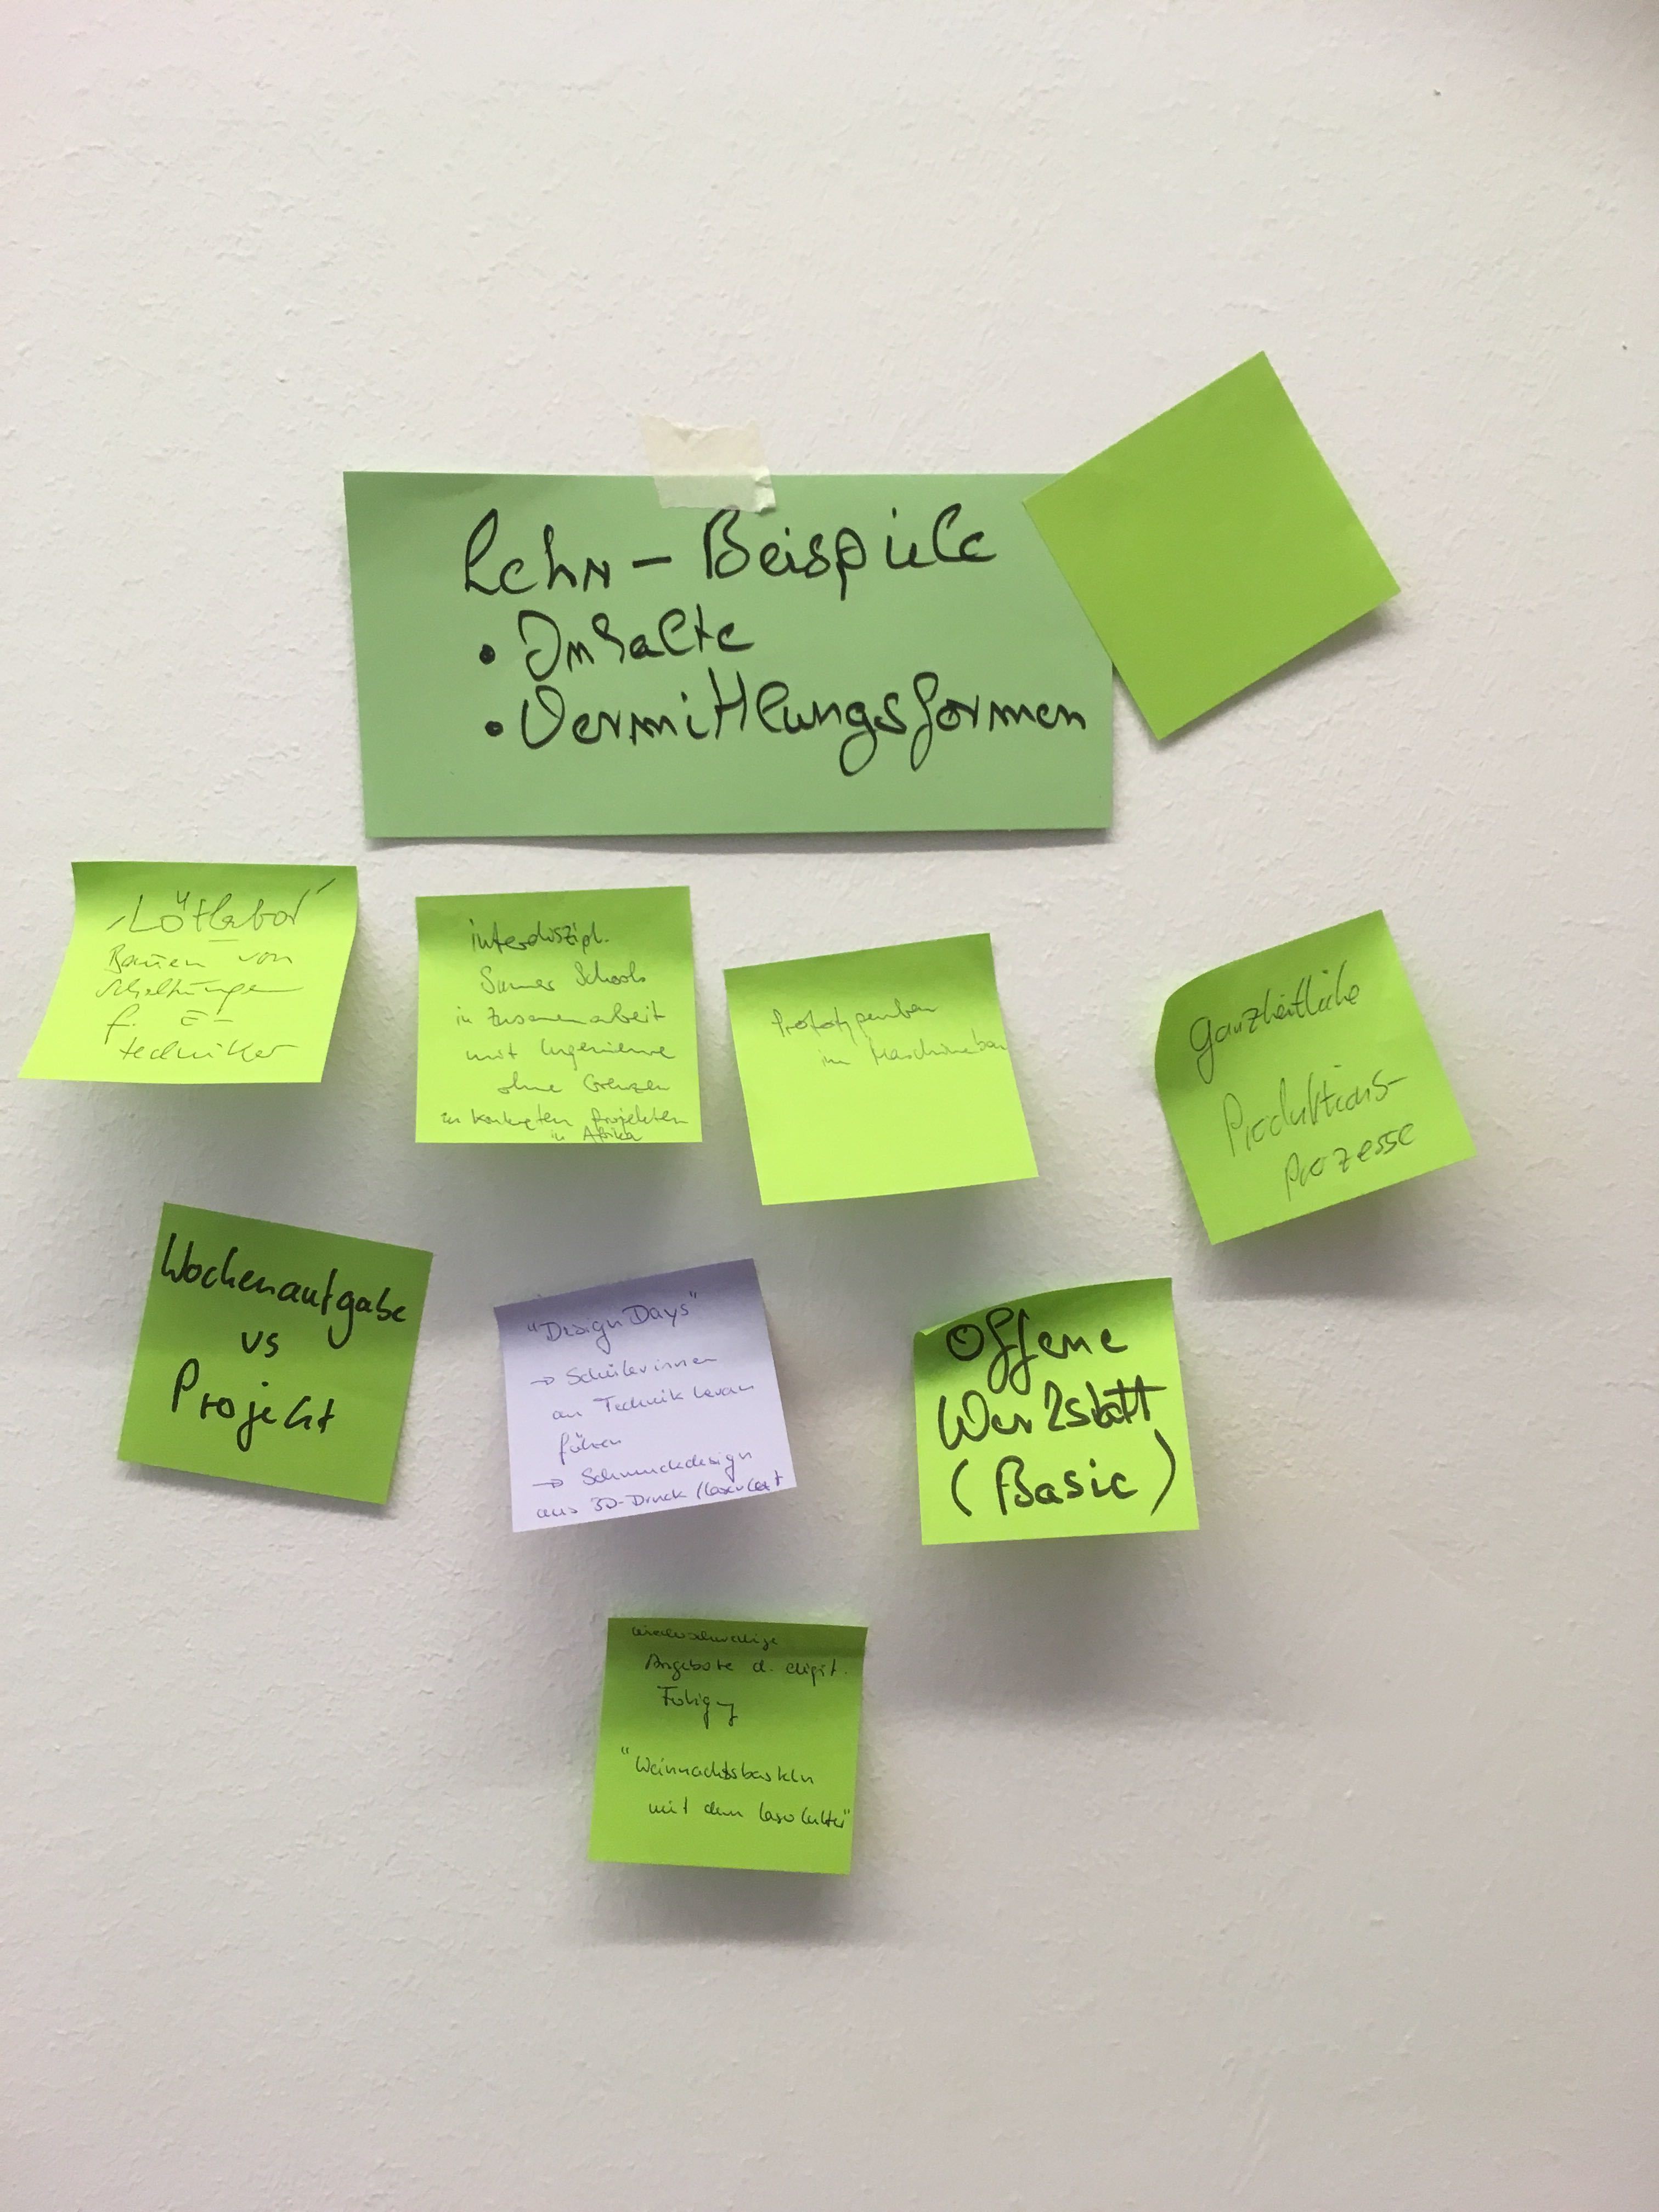 Lehr-Beispiele
• Inhalte
• Vermittlungsformen
"Lötlabor"
Bauen von
Schaltungen
f. E-
techniker
interdiszipl.
Summer Schools
in Zusammenarbeit
mit Ingenieure
ohne Grenzen
zu konkreten Projekten
in Afrika
Prototypenbau
im Maschinenbau
Ganzheitliche
Produktions-
prozesse
Wochenaufgabe
vs
Projekt
"Design Days"
→ Schülerinnen
an Technik heran
führen
→ Schmuckdesign
aus 3D-Druck/Lasercut
Offene
Werkstatt
(Basic)
niederschwellige
Angebote d. digit.
"Weinnachtsbasteln
mit dem Lasercutter"